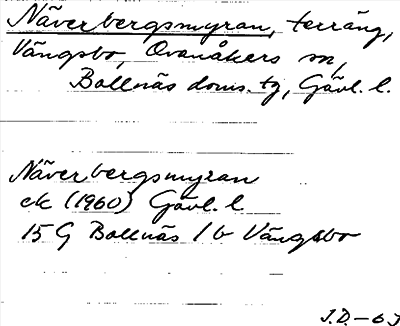 Näverbergsmyran, terräng,
Vängsbo, Ovanåkers sn,
Bollnäs doms. tg, Gävl. l.
Näverbergsmyran
ek (1960) Gävl. l
15 G Bollnäs 1 b Vängsbo
J.D. – 63